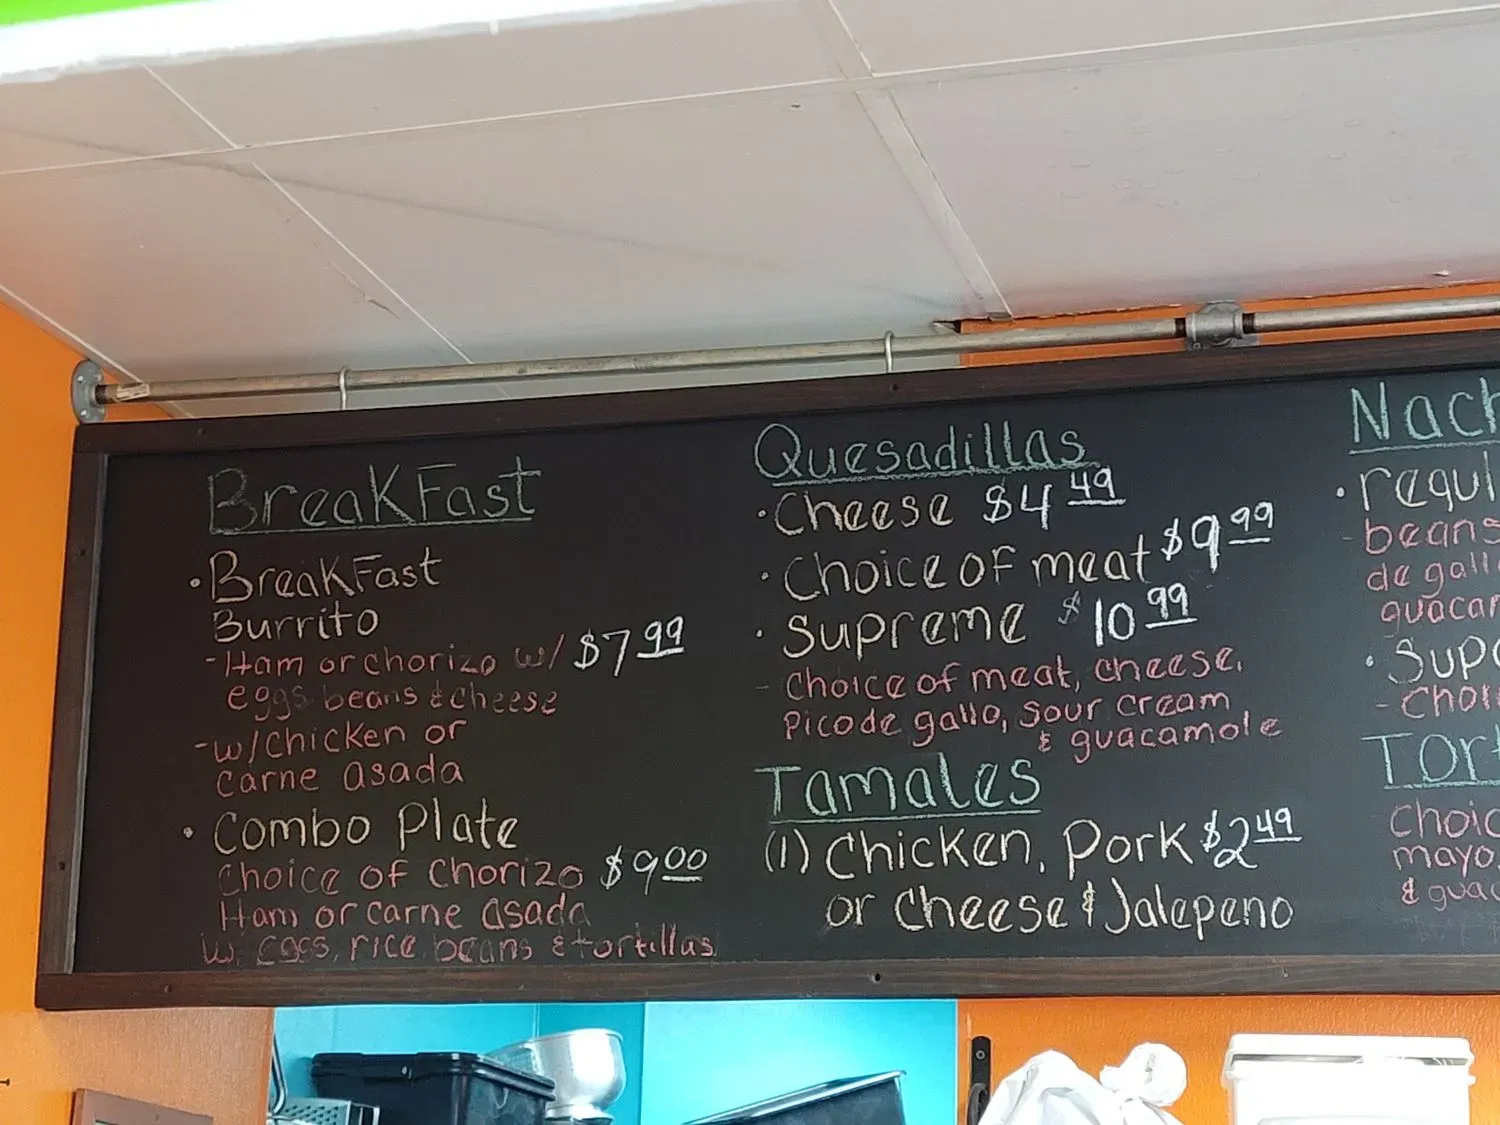 BreakFast
• BreakFast
Burrito
- Ham or chorizo w/ $7 99
eggs beans & cheese
- w/chicken or
carne asada
• Combo Plate
Choice of chorizo $9 00
Ham or carne asada
w/ eggs, rice beans & tortillas
Quesadillas
• Cheese $4 49
• Choice of meat $9 99
• Supreme $10 99
- Choice of meat, cheese,
Pico de gallo, sour cream
& guacamole
Tamales
(1) Chicken, Pork $2 49
or Cheese & Jalepeno
Nach
• regul
- beans
de gall
guacam
• Sup
- Choi
Tort
Choic
mayo
& guac